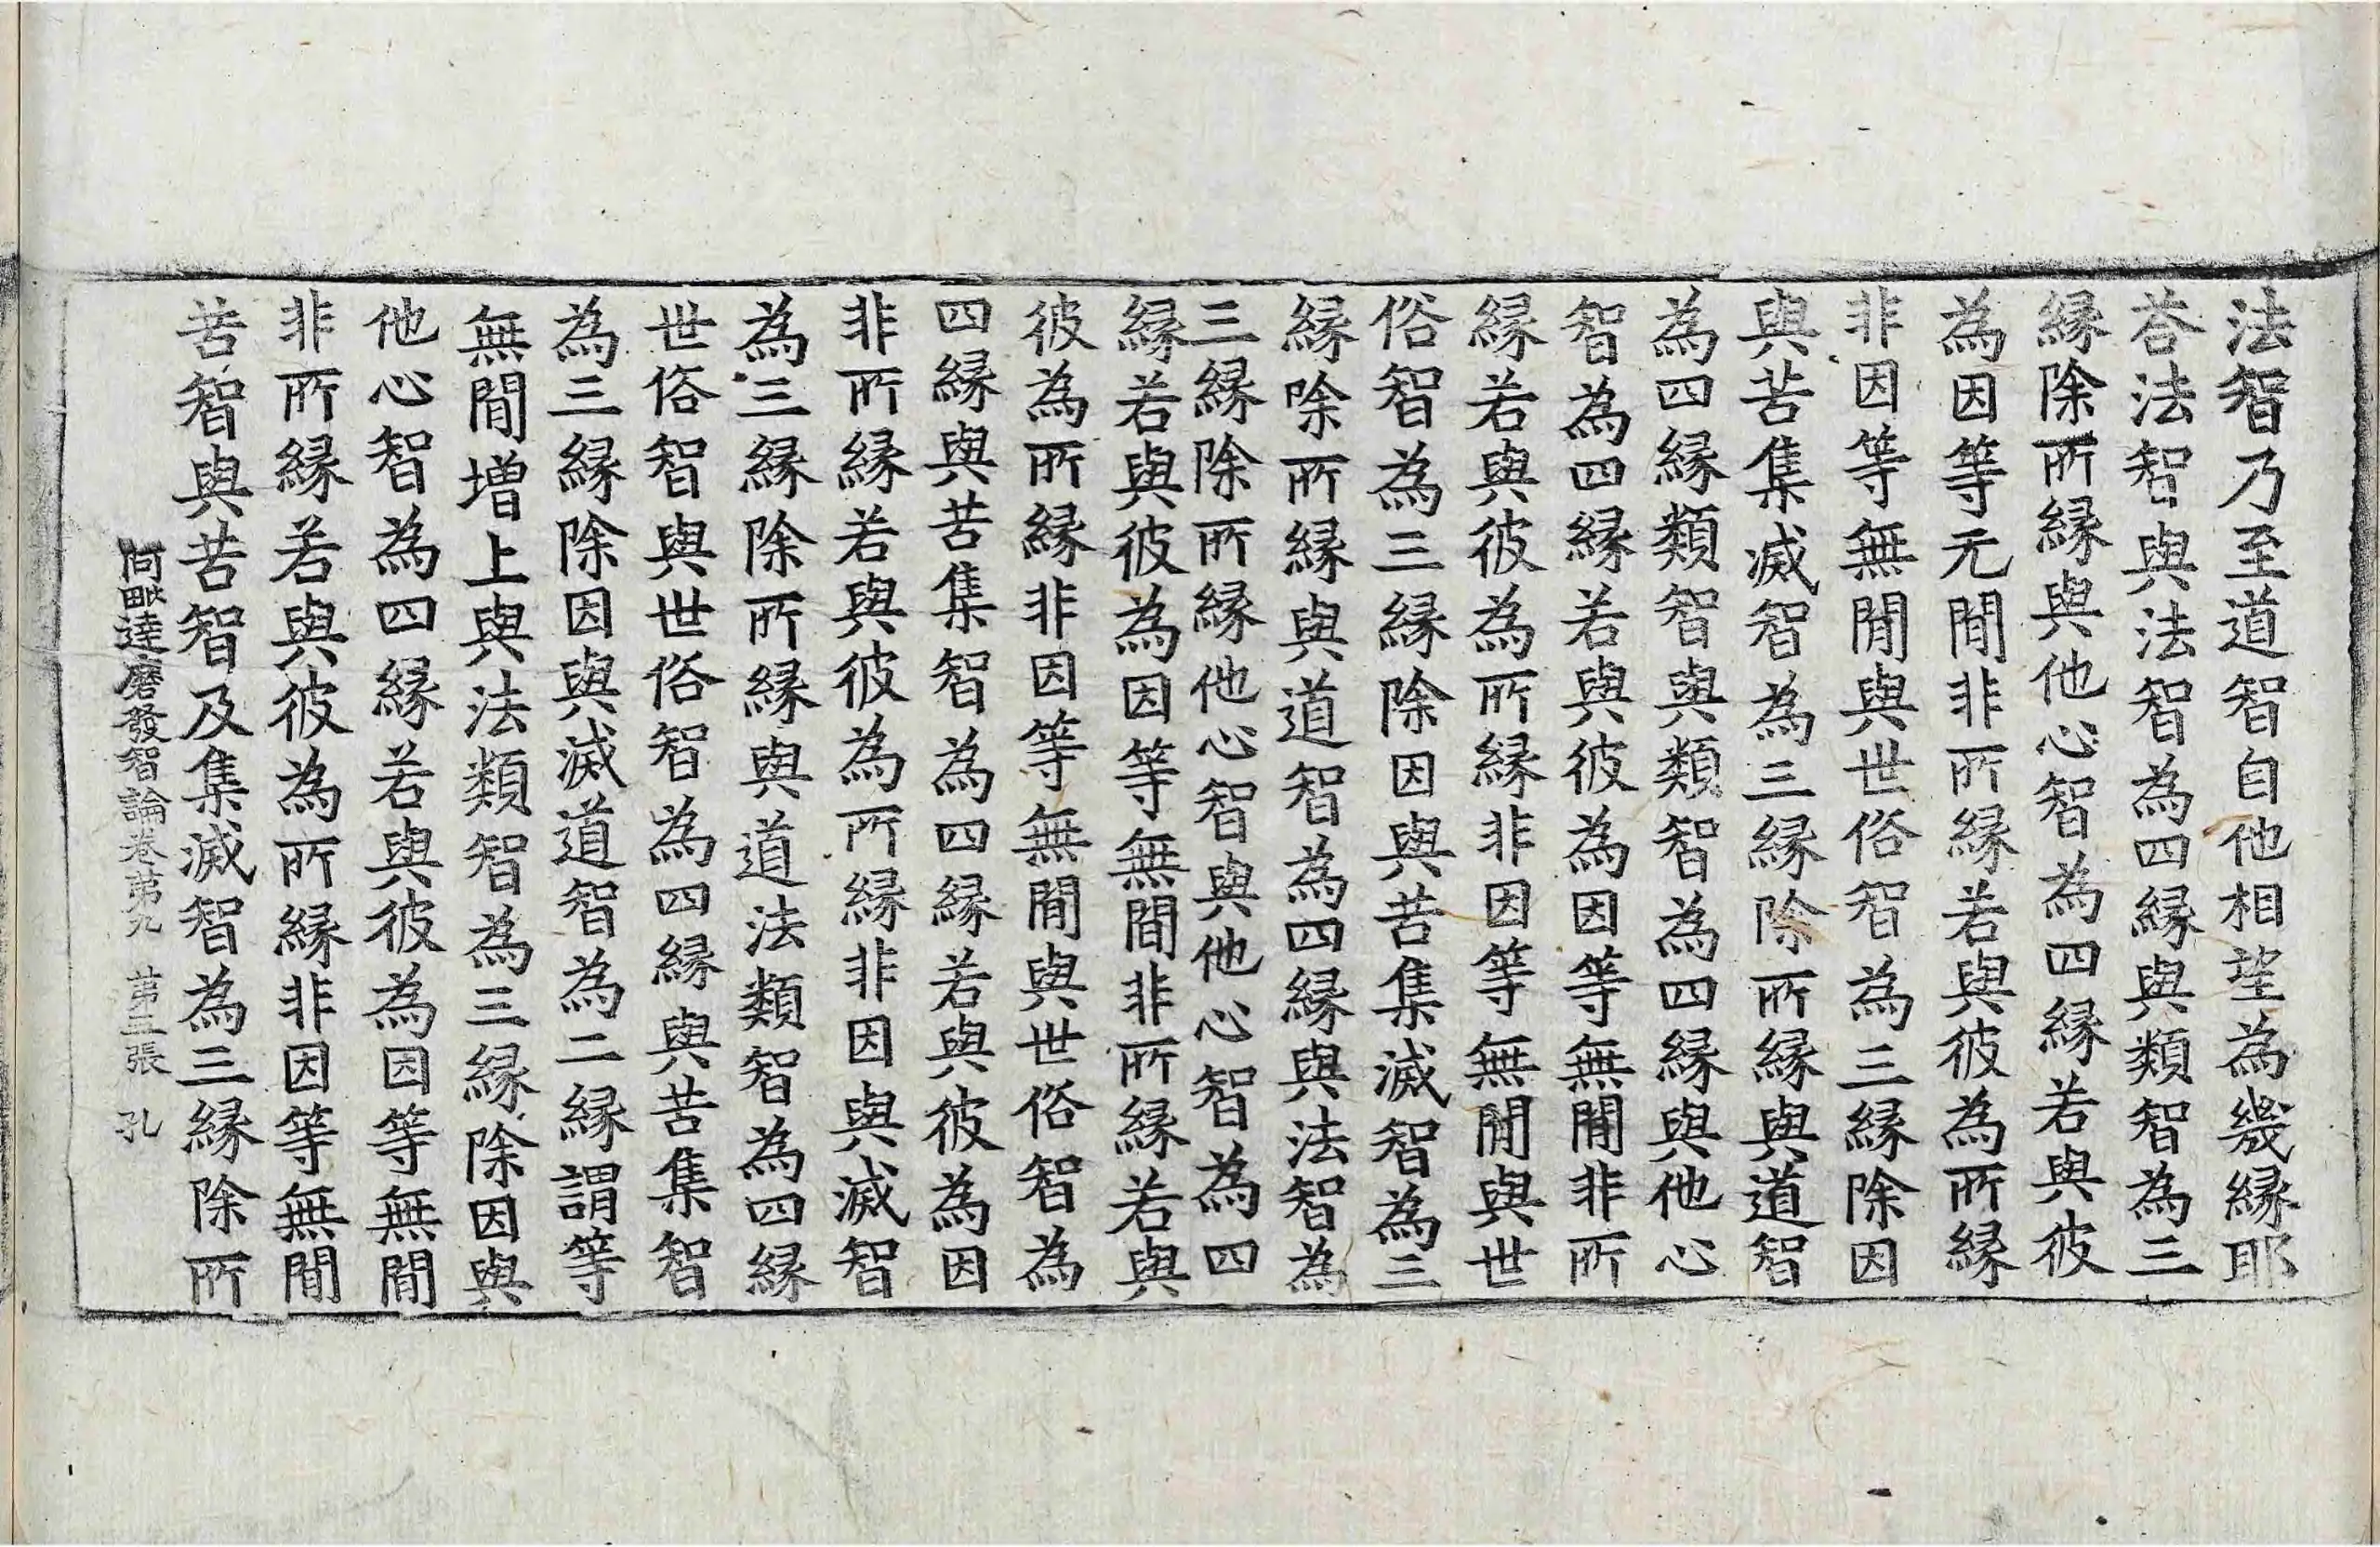 法智乃至道智自他相望為幾縁耶
荅法智與法智為四縁與類智為三
縁除所縁與他心智為四縁若與彼
為因等元間非所縁若與彼為所縁
非因等無間與世俗智為三縁除因
與苦集滅智為三縁除所縁與道智
為四縁類智與類智為四縁與他心
智為四縁若與彼為因等無間非所
縁若與彼為所縁非因等無間與世
俗智為三縁除因與苦集滅智為三
縁除所縁與道智為四縁與法智為
三縁除所縁他心智與他心智為四
縁若與彼為因等無間非所縁若與
彼為所縁非因等無間與世俗智為
四縁與苦集智為四縁若與彼為因
非所縁若與彼為所縁非因與滅智
為三縁除所縁與道法類智為四縁
世俗智與世俗智為四縁與苦集智
為三縁除因與滅道智為二縁謂等
無間增上與法類智為三縁除因與
他心智為四縁若與彼為因等無間
非所縁若與彼為所縁非因等無間
苦智與苦智及集滅智為三縁除所
阿毗達磨發智論卷苐九 苐三張 孔